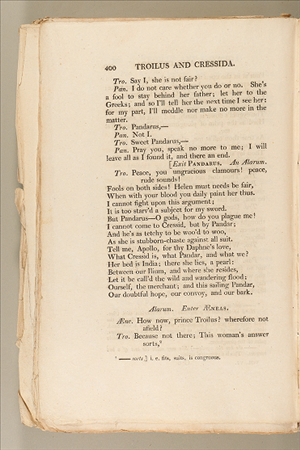 400 TROILUS AND CRESSIDA.
Tro. Say I, she is not fair?
Pan. I do not care whether you do or no. She's
a fool to stay behind her father; let her to the
Greeks; and so I'll tell her the next time I see her:
for my part, I'll meddle nor make no more in the
matter.
Tro. Pandarus,—
Pan. Not I.
Tro. Sweet Pandarus,—
Pan. Pray you, speak no more to me; I will
leave all as I found it, and there an end.
[Exit PANDARUS. An Alarum.
Tro. Peace, you ungracious clamours! peace,
rude sounds!
Fools on both sides! Helen must needs be fair,
When with your blood you daily paint her thus.
I cannot fight upon this argument;
It is too starv'd a subject for my sword.
But Pandarus—O gods, how do you plague me!
I cannot come to Cressid, but by Pandar;
And he's as tetchy to be woo'd to woo,
As she is stubborn-chaste against all suit.
Tell me, Apollo, for thy Daphne's love,
What Cressid is, what Pandar, and what we?
Her bed is India; there she lies, a pearl:
Between our Ilium, and where she resides,
Let it be call'd the wild and wandering flood;
Ourself, the merchant; and this sailing Pandar,
Our doubtful hope, our convoy, and our bark.
Alarum. Enter ÆNEAS.
Æne. How now, prince Troilus? wherefore not
afield?
Tro. Because not there; This woman's answer
sorts,⁵
⁵ —— sorts,] i. e. fits, suits, is congruous.